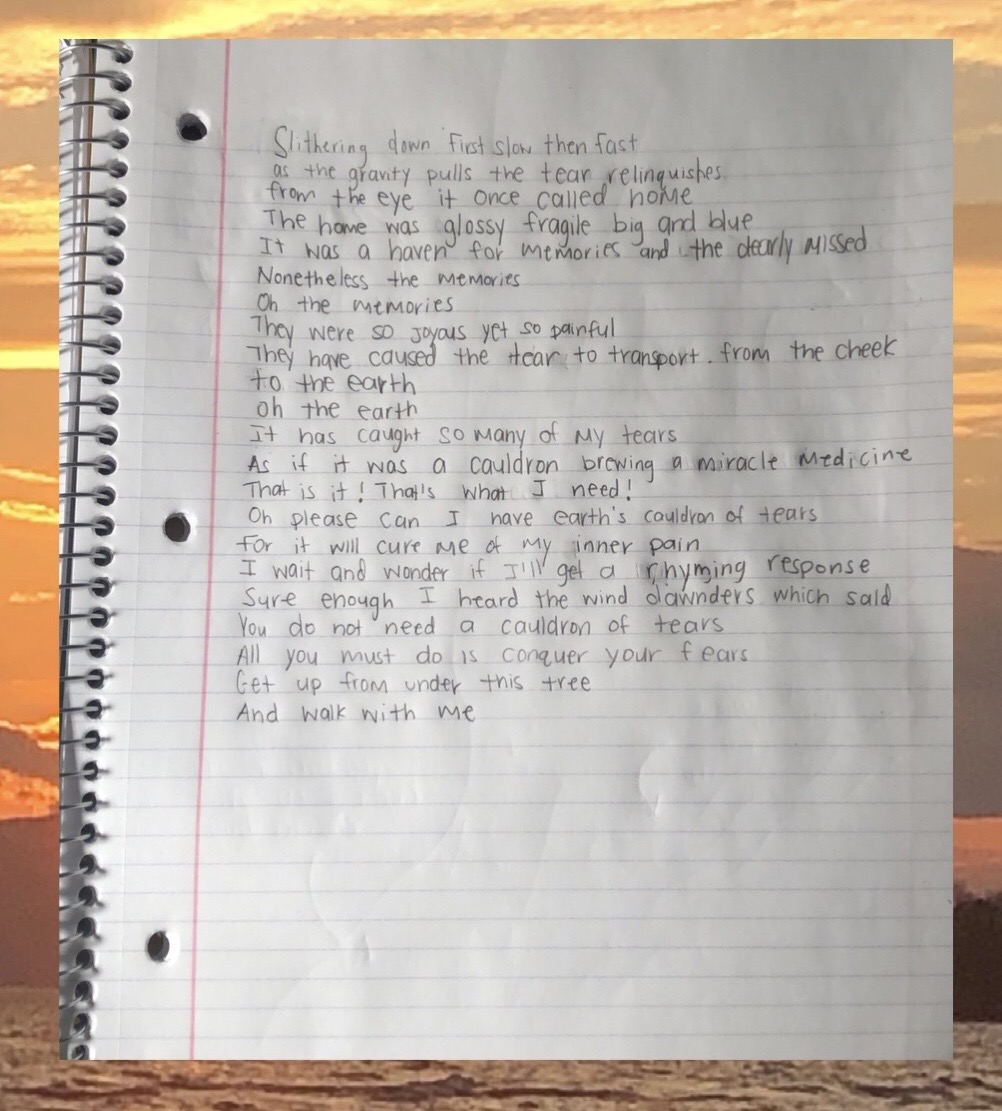 Slithering down first slow then fast
as the gravity pulls the tear relinquishes
from the eye it once called home
The home was glossy fragile big and blue
It was a haven for memories and the dearly missed
Nonetheless the memories
Oh the memories
They were so joyous yet so painful
They have caused the tear to transport from the cheek
to the earth
oh the earth
It has caught so many of my tears
As if it was a cauldron brewing a miracle medicine
That is it! That's what I need!
Oh please can I have earth's cauldron of tears
for it will cure me of my inner pain
I wait and wonder if I'll get a rhyming response
Sure enough I heard the wind dawnders which said
You do not need a cauldron of tears
All you must do is conquer your fears
Get up from under this tree
And walk with me